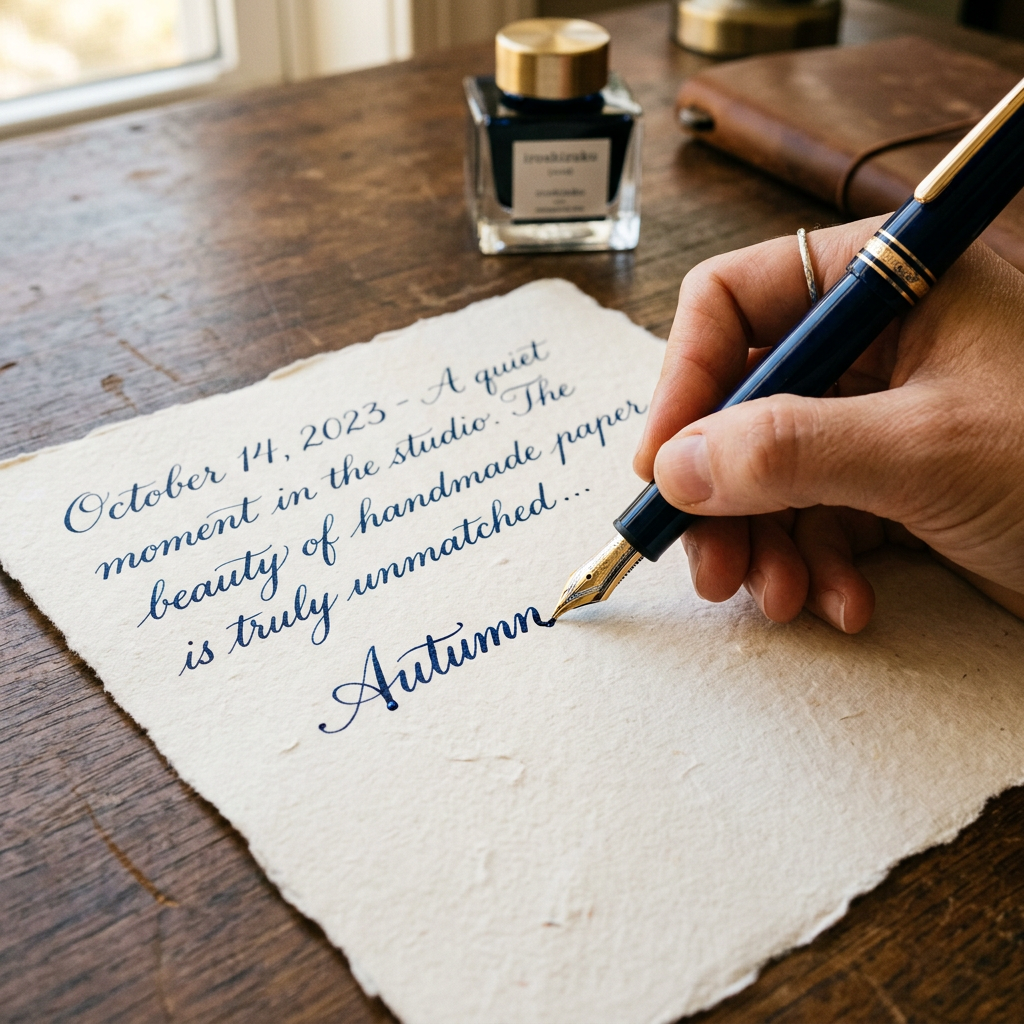 iroshizuku
October 14, 2023 - A quiet
moment in the studio. The
beauty of handmade paper
is truly unmatched...
Autumn